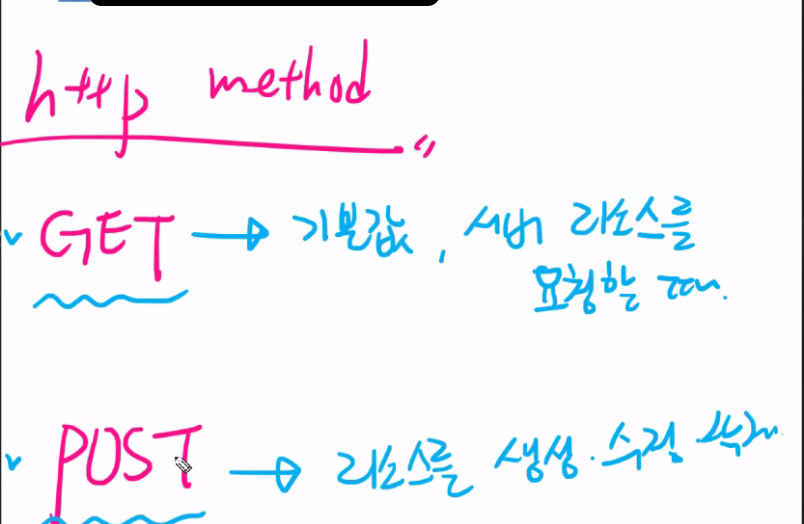 http method
GET → 기본값, 서버 리소스를
요청할 때.
POST → 리소스를 생성·수정 삭제